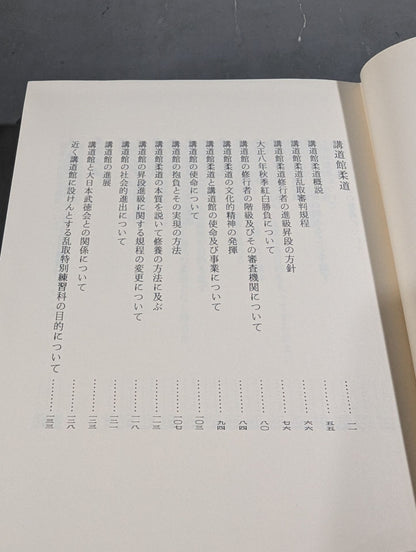 講道館柔道
講道館柔道概説……………一一
講道館柔道乱取審判規程……………五五
講道館柔道修行者の進級昇段の方針……………六六
大正八年秋季紅白勝負について……………七六
講道館の修行者の階級及びその審査機関について……………八〇
講道館柔道の文化的精神の発揮……………八四
講道館柔道と講道館の使命及び事業について……………九四
講道館の使命について……………一〇三
講道館の抱負とその実現の方法……………一〇七
講道館柔道の本質を説いて修養の方法に及ぶ……………一一三
講道館の昇段進級に関する規程の変更について……………一一八
講道館の社会的進出について……………一二一
講道館の進展……………一二三
講道館と大日本武徳会との関係について……………一二八
近く講道館に設けんとする乱取特別練習科の目的について……………一三三